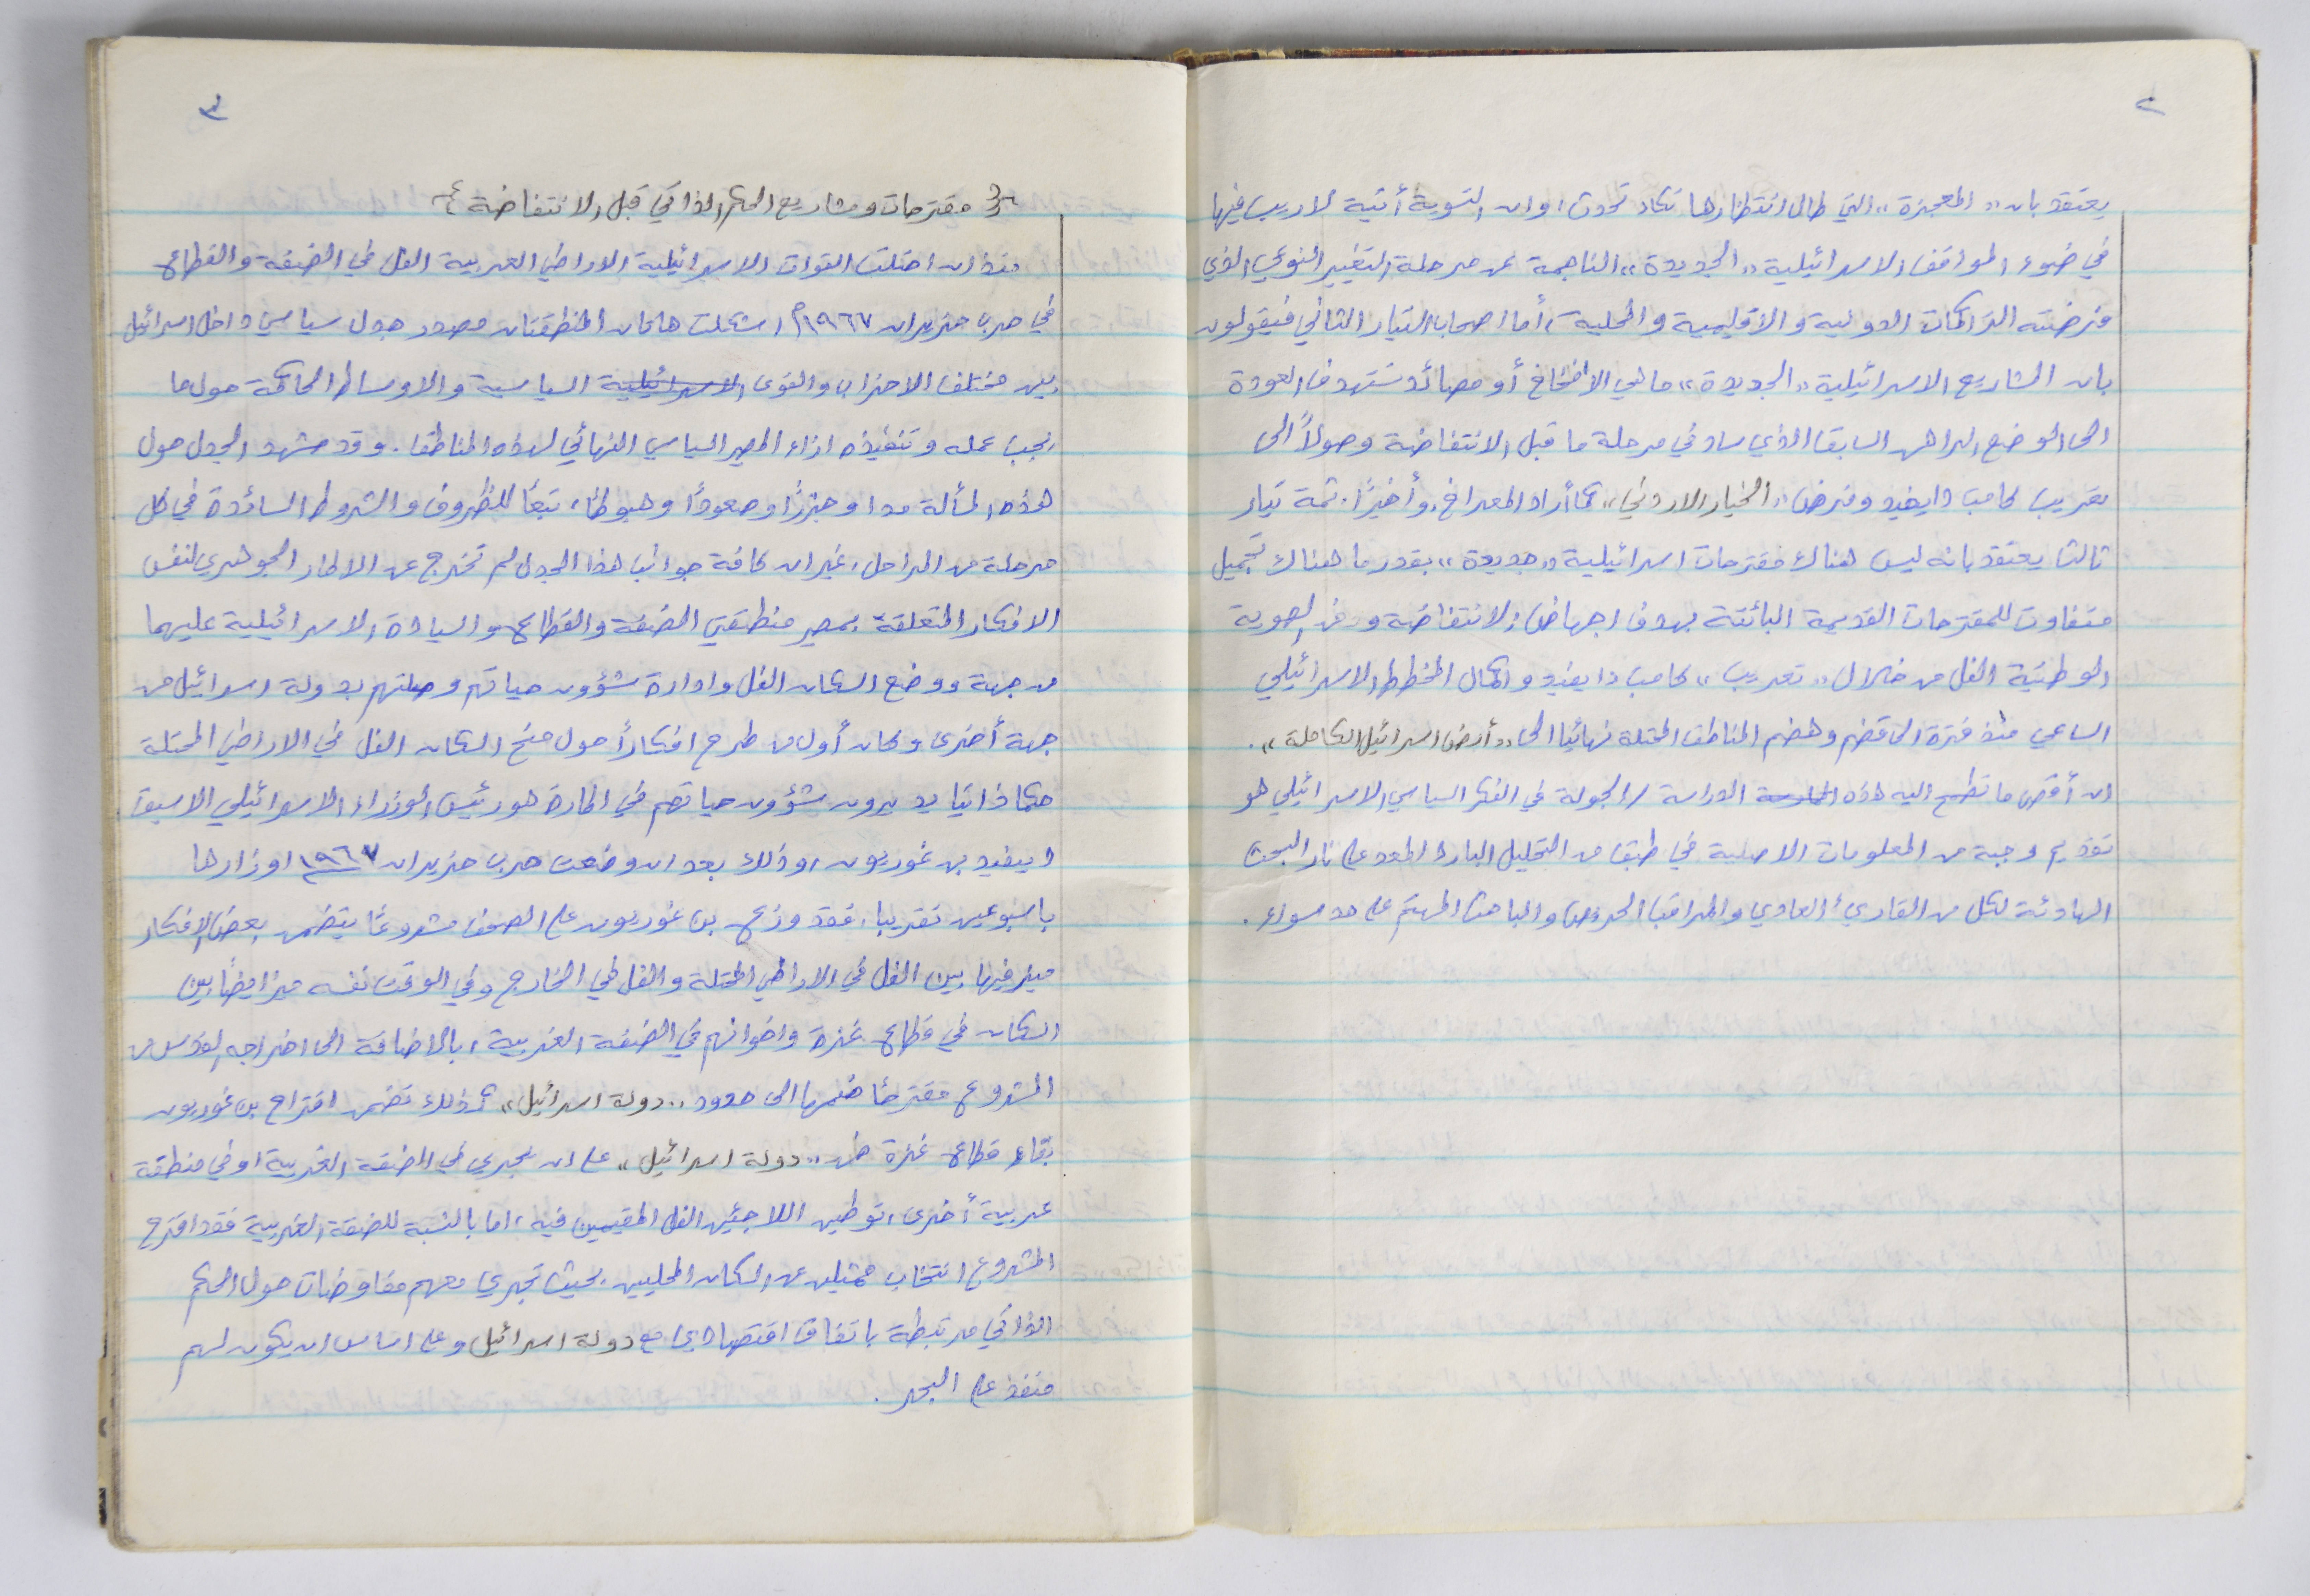 ٢
يعتقد بان «المعجزة» التي طال انتظارها تكاد تحدث، وان التسوية آتية لا ريب فيها
في ضوء المواقف الاسرائيلية «الجديدة» الناجمة عن مرحلة التغيير النوعي الذي
فرضته التراكمات الدولية والاقليمية والمحلية، أما اصحاب التيار الثاني فيقولون
بان المشاريع الاسرائيلية «الجديدة» ما هي الا افخاخ أو مصائد تستهدف العودة
الى الوضع الراهن السابق الذي ساد في مرحلة ما قبل الانتفاضة وصولاً الى
تعريب كامب دايفيد وفرض «الخيار الاردني» كما أراد المعراخ. وأخيرًا. ثمة تيار
ثالث يعتقد بانه ليس هناك مقترحات اسرائيلية «جديدة» بقدر ما هناك تجميل
متفاوت للمقترحات القديمة البائتة بهدف اجهاض الانتفاضة الهوية
الوطنية الفل من خلال «تعريب» كامب دايفيد واكمال المخطط الاسرائيلي
الساعي منذ فترة الى قضم وهضم المناطق المحتلة نهائيا الى «أرض اسرائيل الكاملة».
ان أقصى ما تطمح اليه هذه الدراسة / الجولة في الفكر السياسي الاسرائيلي هو
تقديم وجبة من المعلومات الاصلية في طبق من التحليل البارد المعد على نار البحث
الهادئة لكل من القارىء العادي والمراقب والباحث المهتم على حد سواء.
٣
مقترحات ومشاريع الحكم الذاتي قبل الانتفاضة
منذ ان احتلت القوات الاسرائيلية الاراضي العربية الفل في الضفة والقطاع
في حرب حزيران ١٩٦٧م، شكلت هاتان المنطقتان مصدر جدل سياسي داخل اسرائيل
بين مختلف الاحزاب والقوى الاسرائيلية السياسية والاوساط الحاكمة حول ما
يجب عمله وتنفيذه ازاء المصير السياسي النهائي لهذه المناطق. وقد شهد الجدل حول
هذه المسألة مدا وجزرًا وصعودًا وهبوطًا، تبعًا للظروف والشروط السائدة في كل
مرحلة من المراحل، غير ان كافة جوانب هذا الجدل لم تخرج عن الاطار الجوهري لنفس
الافكار المتعلقة بمصير منطقتي الضفة والقطاع والسيادة الاسرائيلية عليهما
من جهة ووضع السكان الفل وادارة شؤون حياتهم وصلتهم بدولة اسرائيل من
جهة أخرى وكان أول من طرح افكاراً حول منح السكان الفل في الاراضي المحتلة
حكما ذاتيا يديرون شؤون حياتهم في اطاره هو رئيس الوزراء الاسرائيلي الاسبق
دايفيد بن غوريون، وذلك بعد ان وضعت حرب حزيران ١٩٦٧ اوزارها
باسبوعين تقريبا، فقد وزع بن غوريون على الصحف مشروعًا يتضمن بعض الافكار
ميز فيها بين الفل في الاراضي المحتلة والفل في الخارج وفي الوقت نفسه ميز ايضًا بين
السكان في قطاع غزة واخوانهم في الضفة الغربية، بالاضافة الى اخراجه القدس من
المشروع مقترحًا ضمها الى حدود «دولة اسرائيل» كذلك تضمن اقتراح بن غوريون
بقاء قطاع غزة ضمن «دولة اسرائيل» على ان يجري في الضفة الغربية او في منطقة
عربية أخرى، توطين اللاجئين الفل المقيمين فيه، اما بالنسبة للضفة الغربية فقد اقترح
المشروع انتخاب ممثلين عن السكان المحليين. بحيث تجري معهم مفاوضات حول الحكم
الذاتي مرتبطة باتفاق اقتصادي مع دولة اسرائيل وعلى اساس ان يكون لهم
منفذ على البحر.